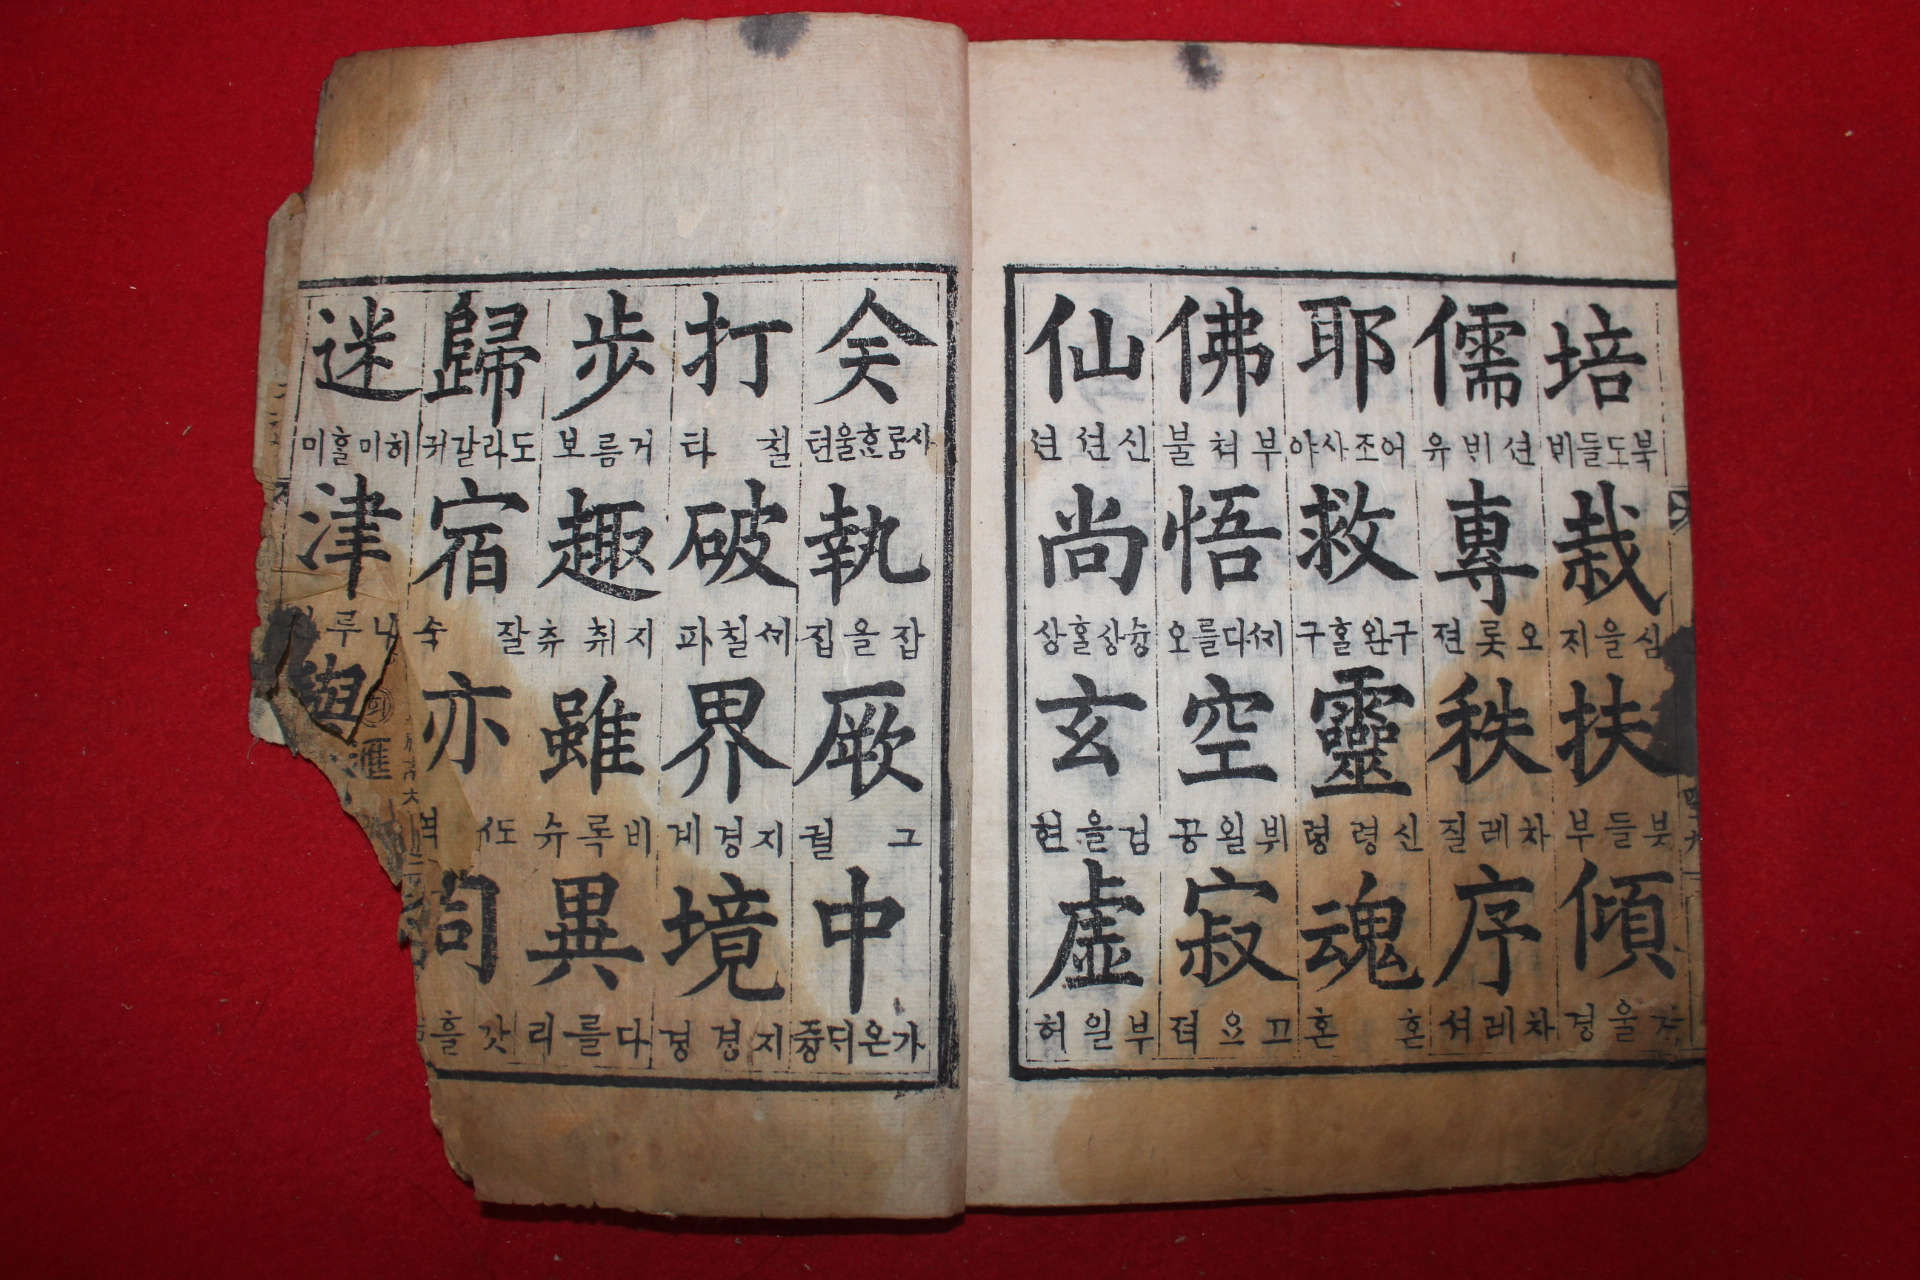 培 북도들비 栽 심을지 扶 붓들부 傾 울경
儒 션비유 專 오롯젼 秩 차레질 序 차레셔
耶 어조사야 救 구완홀구 靈 신령령 魂 혼혼
佛 부쳐불 悟 세다를오 空 뷔일공 寂 고요젹
仙 신션션 尚 슝상홀상 玄 검을현 虛 부일허
사룸훈울텬 執 잡을집 厥 그궐 中 가온듸즁
打 칠타 破 세칠파 界 지경계 境 지경경
步 거름보 趣 지취츄 雖 비록슈 異 다를리
歸 도라갈귀 宿 잘숙 亦 역 同 갓흘
迷 히미홀미 津 나루 與